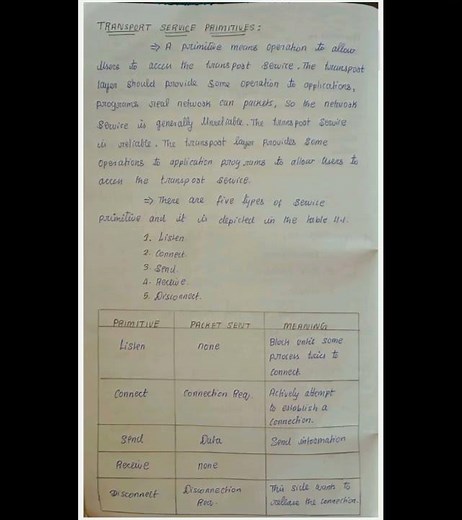 TRANSPORT SERVICE PRIMITIVES:
⇒ A primitive means operation to allow
Users to access the transport service. The transport
layer should provide some operation to applications,
programs. real network can packets, so the network
service is generally Unreliable. The transport service
is reliable. The transport layer provides some
operations to application programs to allow users to
access the transport service.
⇒ There are five types of service
primitive and it is depicted in the table 11.1.
1. Listen
2. Connect
3. Send
4. Receive
5. Disconnect.
PRIMITIVE PACKET SENT MEANING
Listen none Block until some
process tries to
connect
Connect Connection Req. Actively attempt
to establish a
connection.
Send Data Send information
Receive none
Disconnect Disconnection
Req. This side wants to
release the connection.